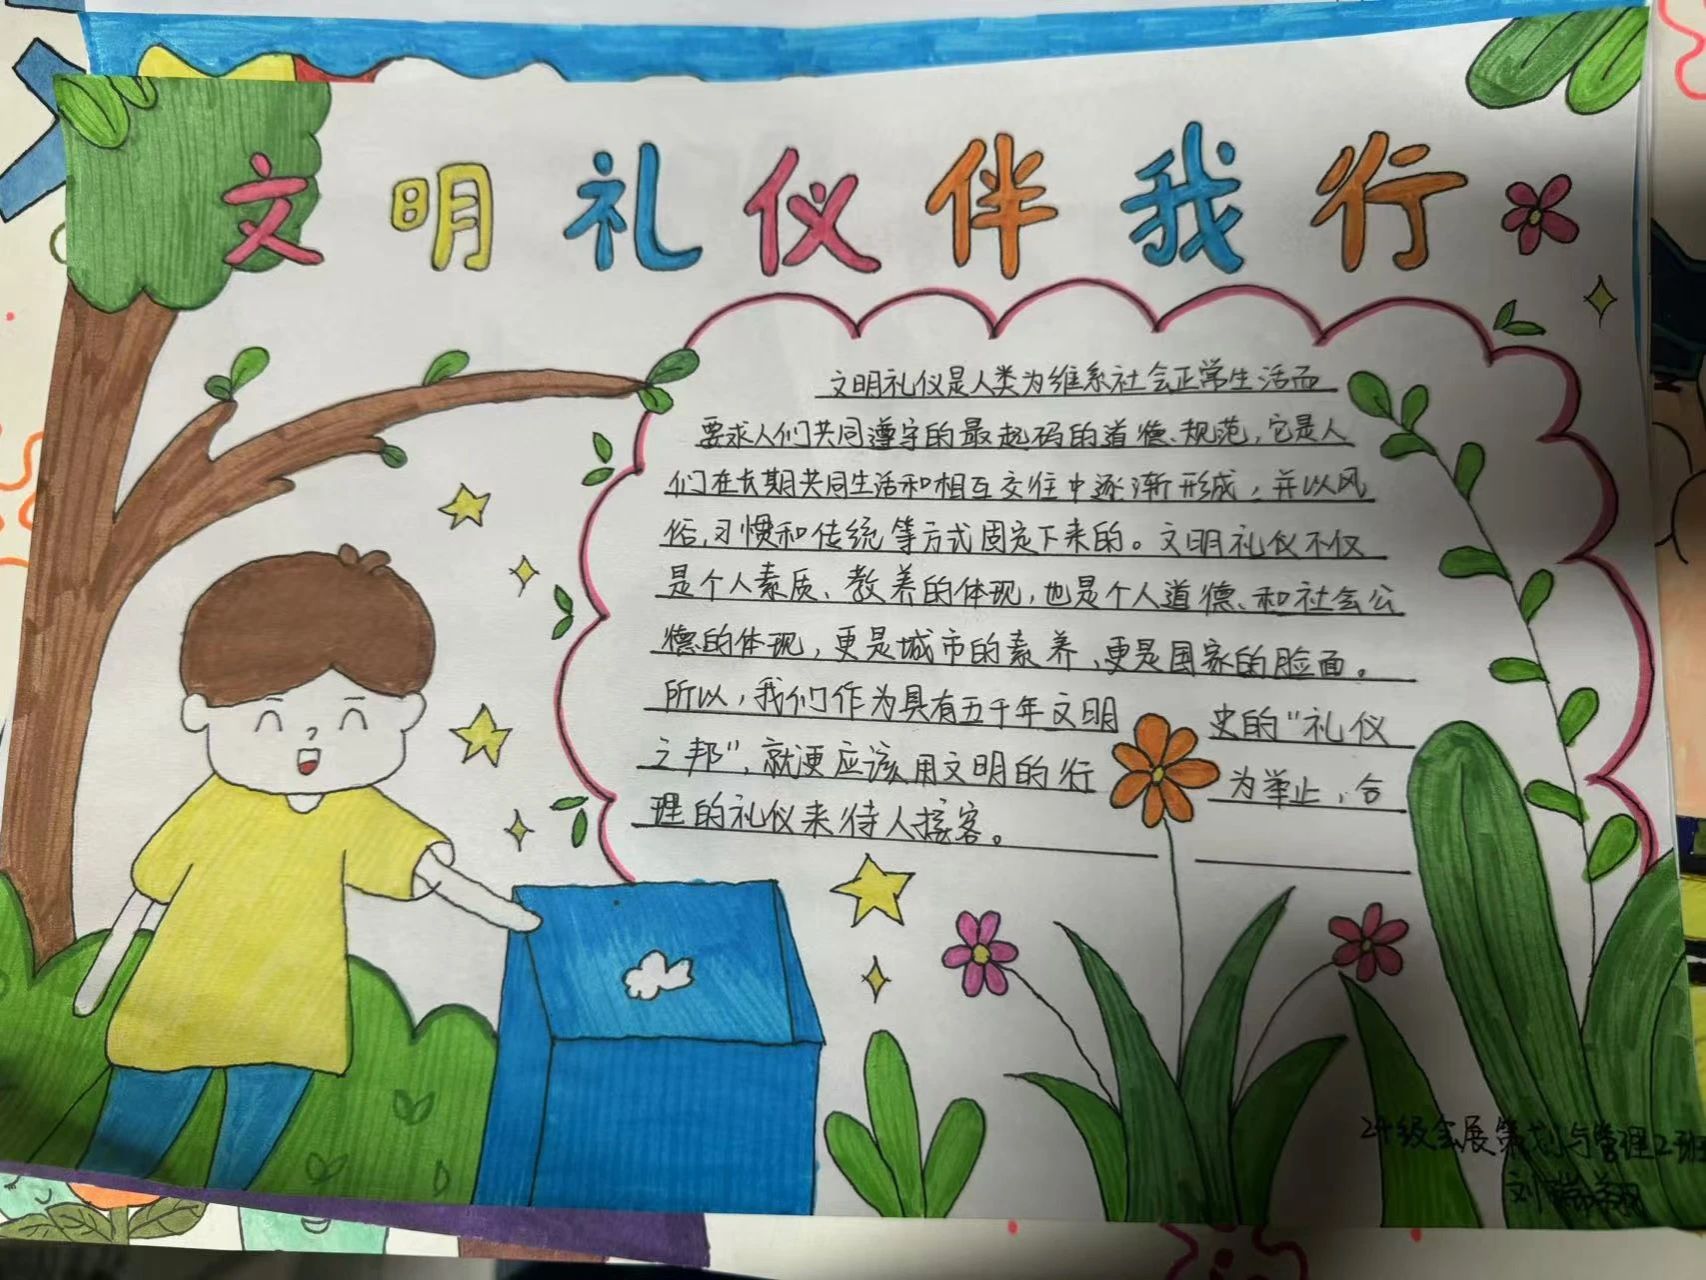 文明礼仪伴我行
文明礼仪是人类为维系社会正常生活而
要求人们共同遵守的最起码的道德、规范，它是人
们在长期共同生活和相互交往中逐渐形成，并以风
俗，习惯和传统等方式固定下来的。文明礼仪不仅
是个人素质、教养的体现，也是个人道德、和社会公
德的体现，更是城市的素养、更是国家的脸面。
所以，我们作为具有五千年文明 史的“礼仪
之邦”，就更应该用文明的行 为举止，合
理的礼仪来待人接客。
24级会展策划与管理2班
刘